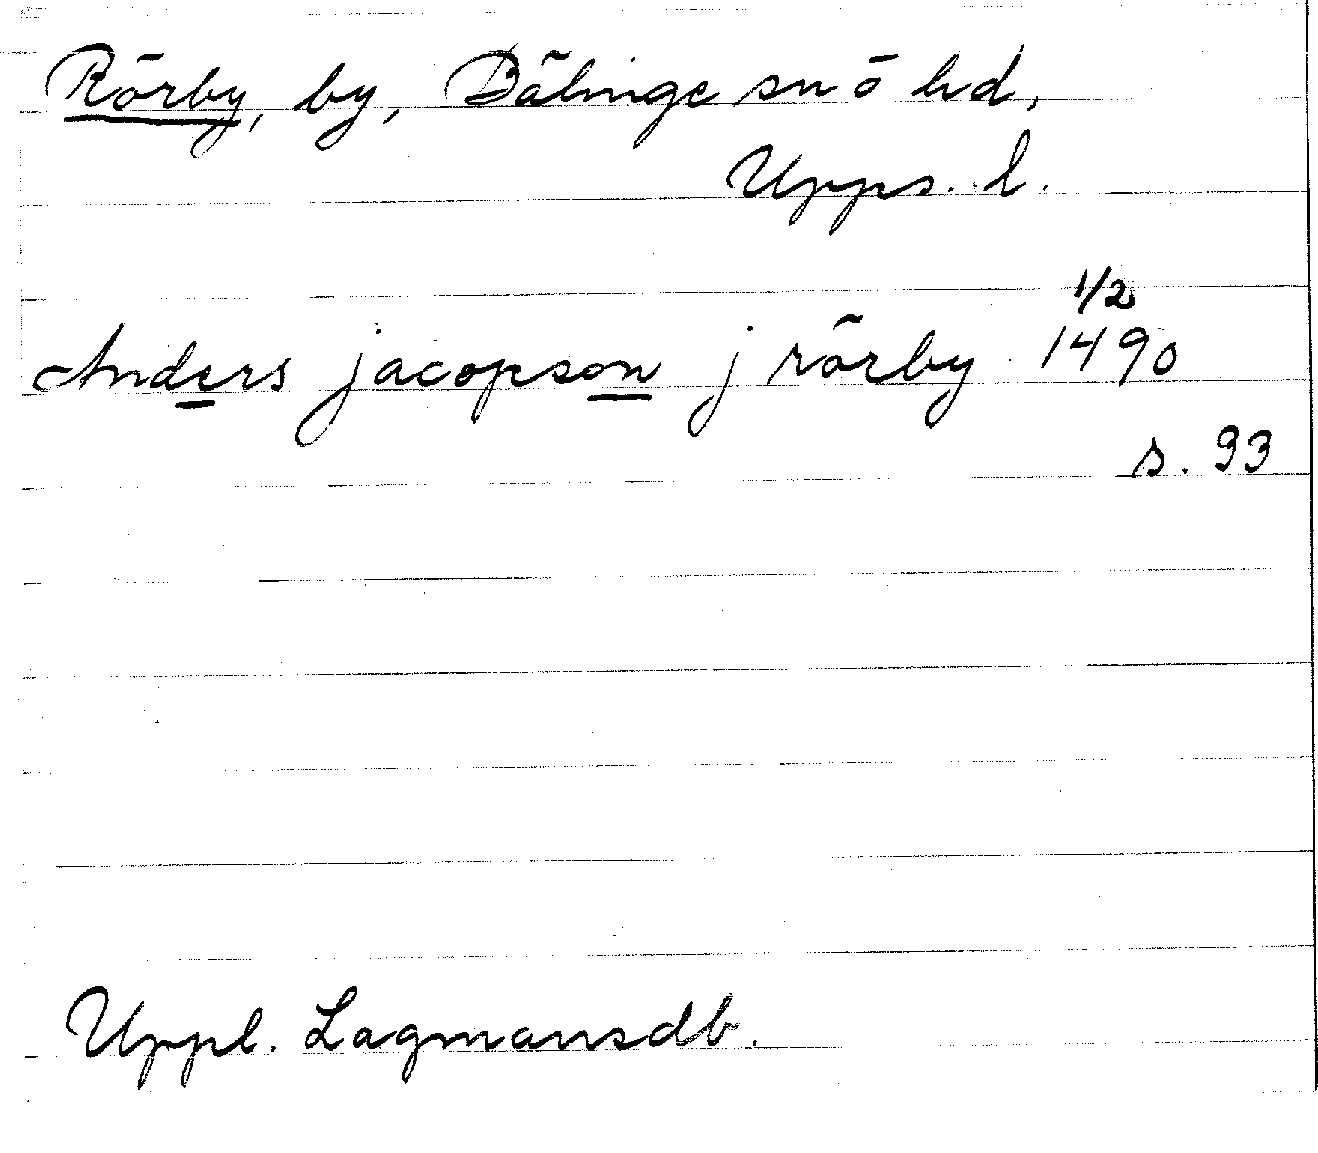 Rörby, by, Bälinge sn ō hd,
Upps. l.
1/2
Anders jacopson j rörby 1490
s. 93
Uppl. Lagmansdb.